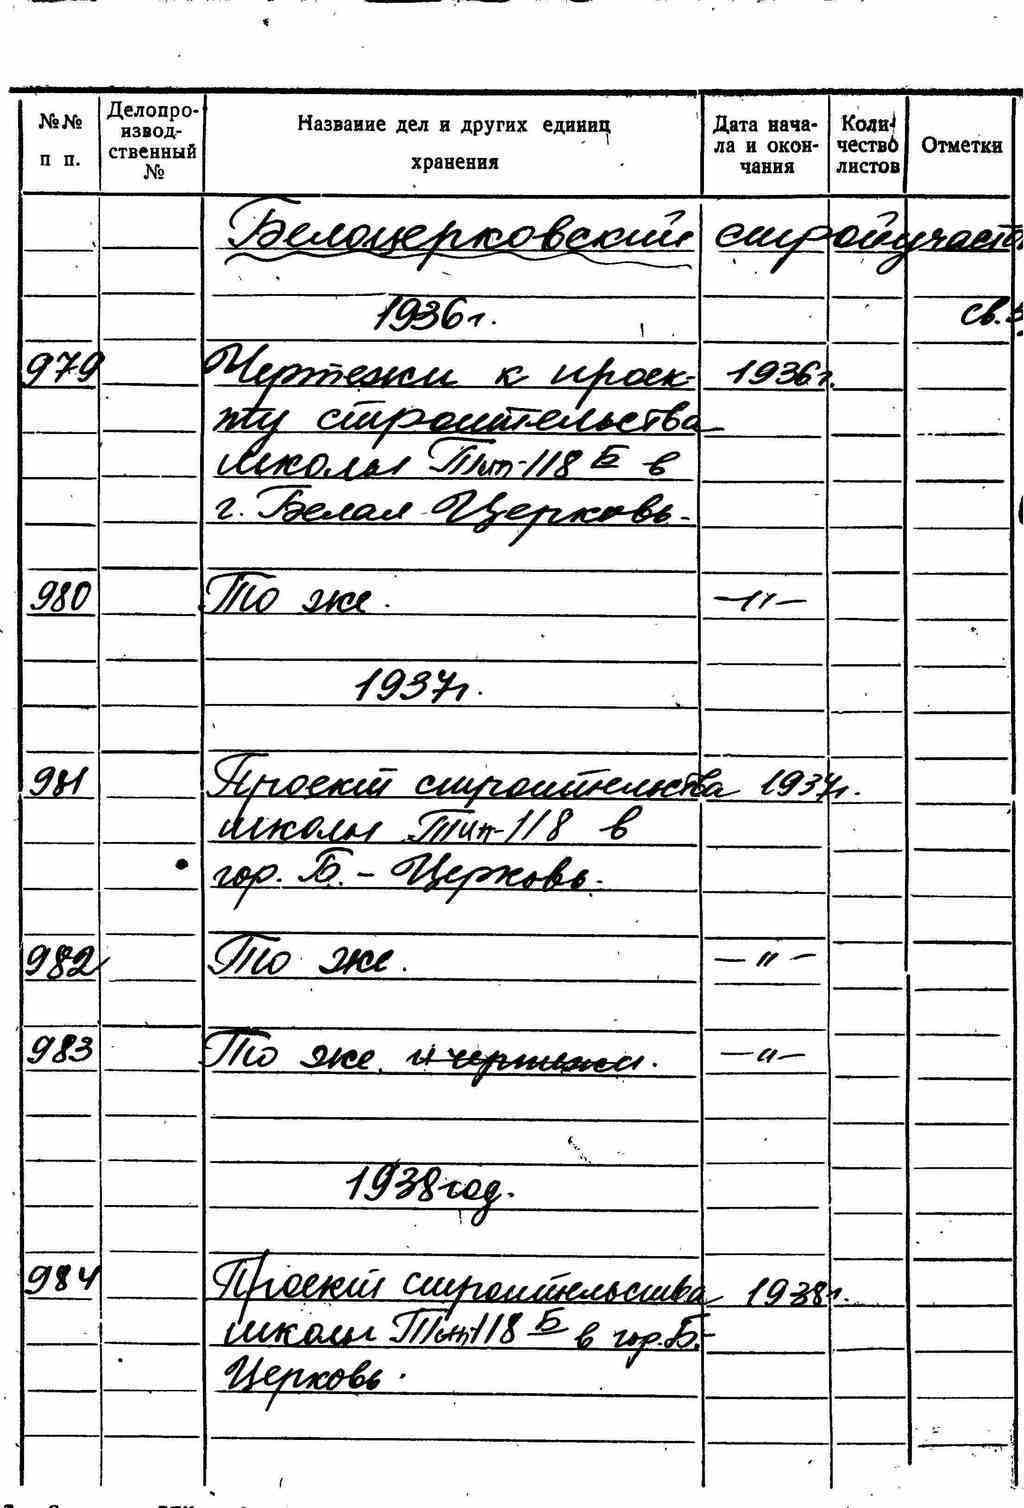 №№ п п.
Делопроизводственный №
Название дел и других единиц хранения
Дата начала и окончания
Количество листов
Отметки
Белоцерковский стройучасто
1936г. св.
979 Чертежи к проек- 1936г.
ту строительства
школы Тип-118 Б в
г. Белая Церковь.
980 То же. —"—
1937г.
981 Проект строительства 1937г.
школы Тип-118 в
гор. Б.-Церковь.
982 То же. —"—
983 То же и чертежи. —"—
1938год.
984 Проект строительства 1938г.
школы Тип 118 Б в гор. Б.-
Церковь.